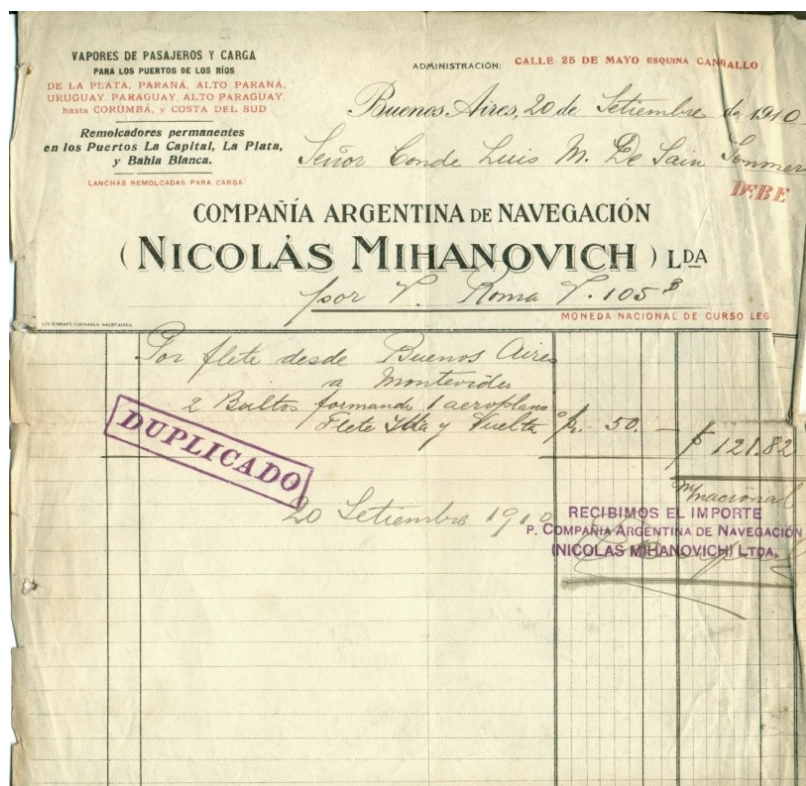 VAPORES DE PASAJEROS Y CARGA
PARA LOS PUERTOS DE LOS RÍOS
DE LA PLATA, PARANÁ, ALTO PARANÁ,
URUGUAY, PARAGUAY, ALTO PARAGUAY,
hasta CORUMBÁ, y COSTA DEL SUD
Remolcadores permanentes
en los Puertos La Capital, La Plata,
y Bahía Blanca.
LANCHAS REMOLCADAS PARA CARGA
ADMINISTRACIÓN: CALLE 25 DE MAYO ESQUINA CANGALLO
Buenos Aires, 20 de Setiembre de 1910
Señor Conde Luis M. De Sain
DEBE
COMPAÑÍA ARGENTINA DE NAVEGACIÓN
(NICOLÁS MIHANOVICH) LDA
por V. Roma V. 105
MONEDA NACIONAL DE CURSO LEG
Por flete desde Buenos Aires
a Montevideo
2 Bultos formando 1 aeroplano
Flete Ida y Vuelta 50.- $ 121.82
m/nacional
DUPLICADO
20 Setiembre 1910
RECIBIMOS EL IMPORTE
P. COMPAÑIA ARGENTINA DE NAVEGACIÓN
(NICOLAS MIHANOVICH) LTDA.